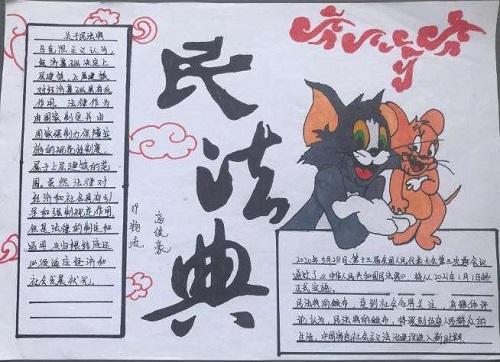 关于民法典
马克思主义认为，
经济基础决定上
层建筑，上层建筑
对经济基础具有反
作用。法律作为
由国家制定并由
国家强制力保障实
施的规范性制度，
属于上层建筑的范
围。虽然法律对
经济和社会具有引
导和强制规范作用，
但是法律的制定和
适用
社会发展状况。
民法典
高俊豪
2020年5月28日，第十三届全国人民代表大会第三次会议
通过了《中华人民共和国民法典》，将从2021年1月1日起
正式实施。
民法典的颁布，受到社会各界关注，有媒体评
论认为，民法典的颁布，将深刻
生活，中国特色社会主义法治建设进入新时期。